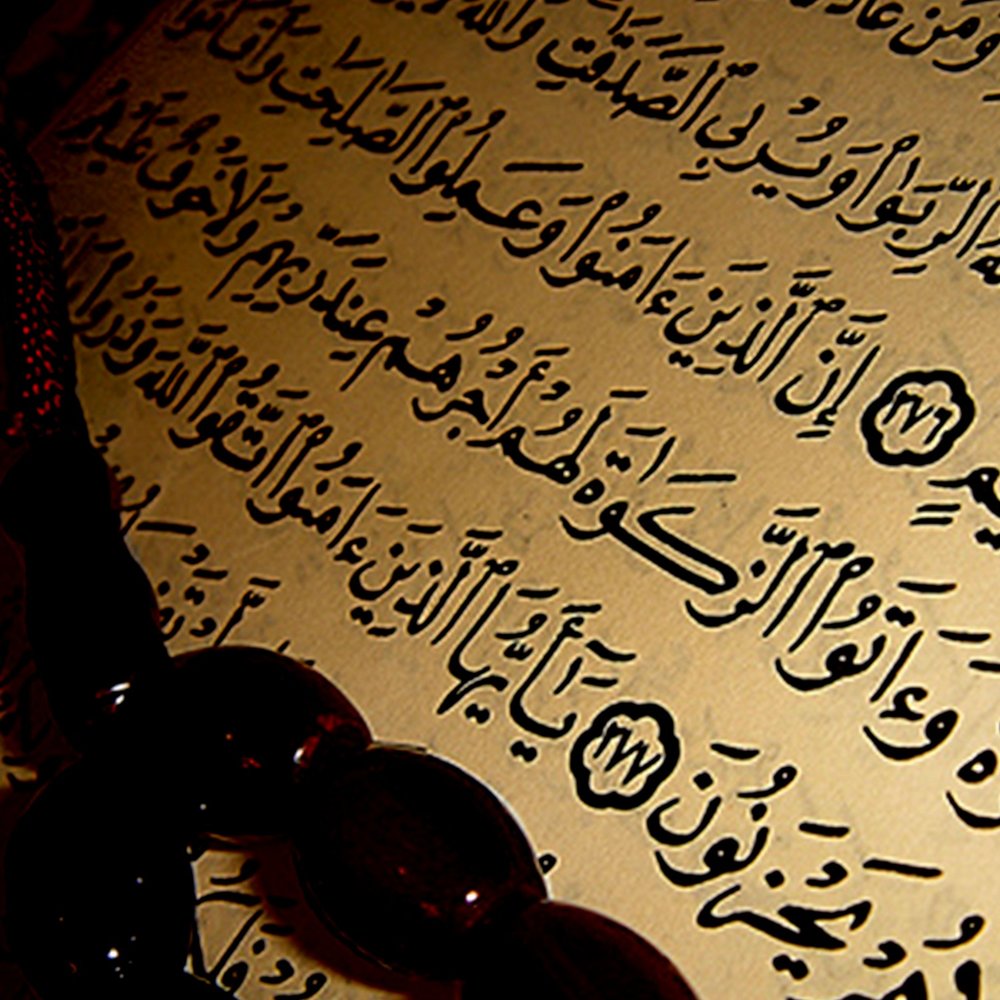 وَمَنْ عَادَ
ٱلرِّبَوٰا۟ وَيُرْبِى ٱلصَّدَقَٰتِ وَٱللَّهُ
ـيمٍ ٢٧٦ إِنَّ ٱلَّذِينَ ءَامَنُوا۟ وَعَمِلُوا۟ ٱلصَّٰلِحَٰتِ وَأَقَامُوا۟
وَءَاتَوُا۟ ٱلزَّكَوٰةَ لَهُمْ أَجْرُهُمْ عِندَ رَبِّهِمْ وَلَا خَوْفٌ عَلَيْهِمْ
هُمْ يَحْزَنُونَ ٢٧٧ يَٰٓأَيُّهَا ٱلَّذِينَ ءَامَنُوا۟ ٱتَّقُوا۟ ٱللَّهَ وَذَرُوا۟